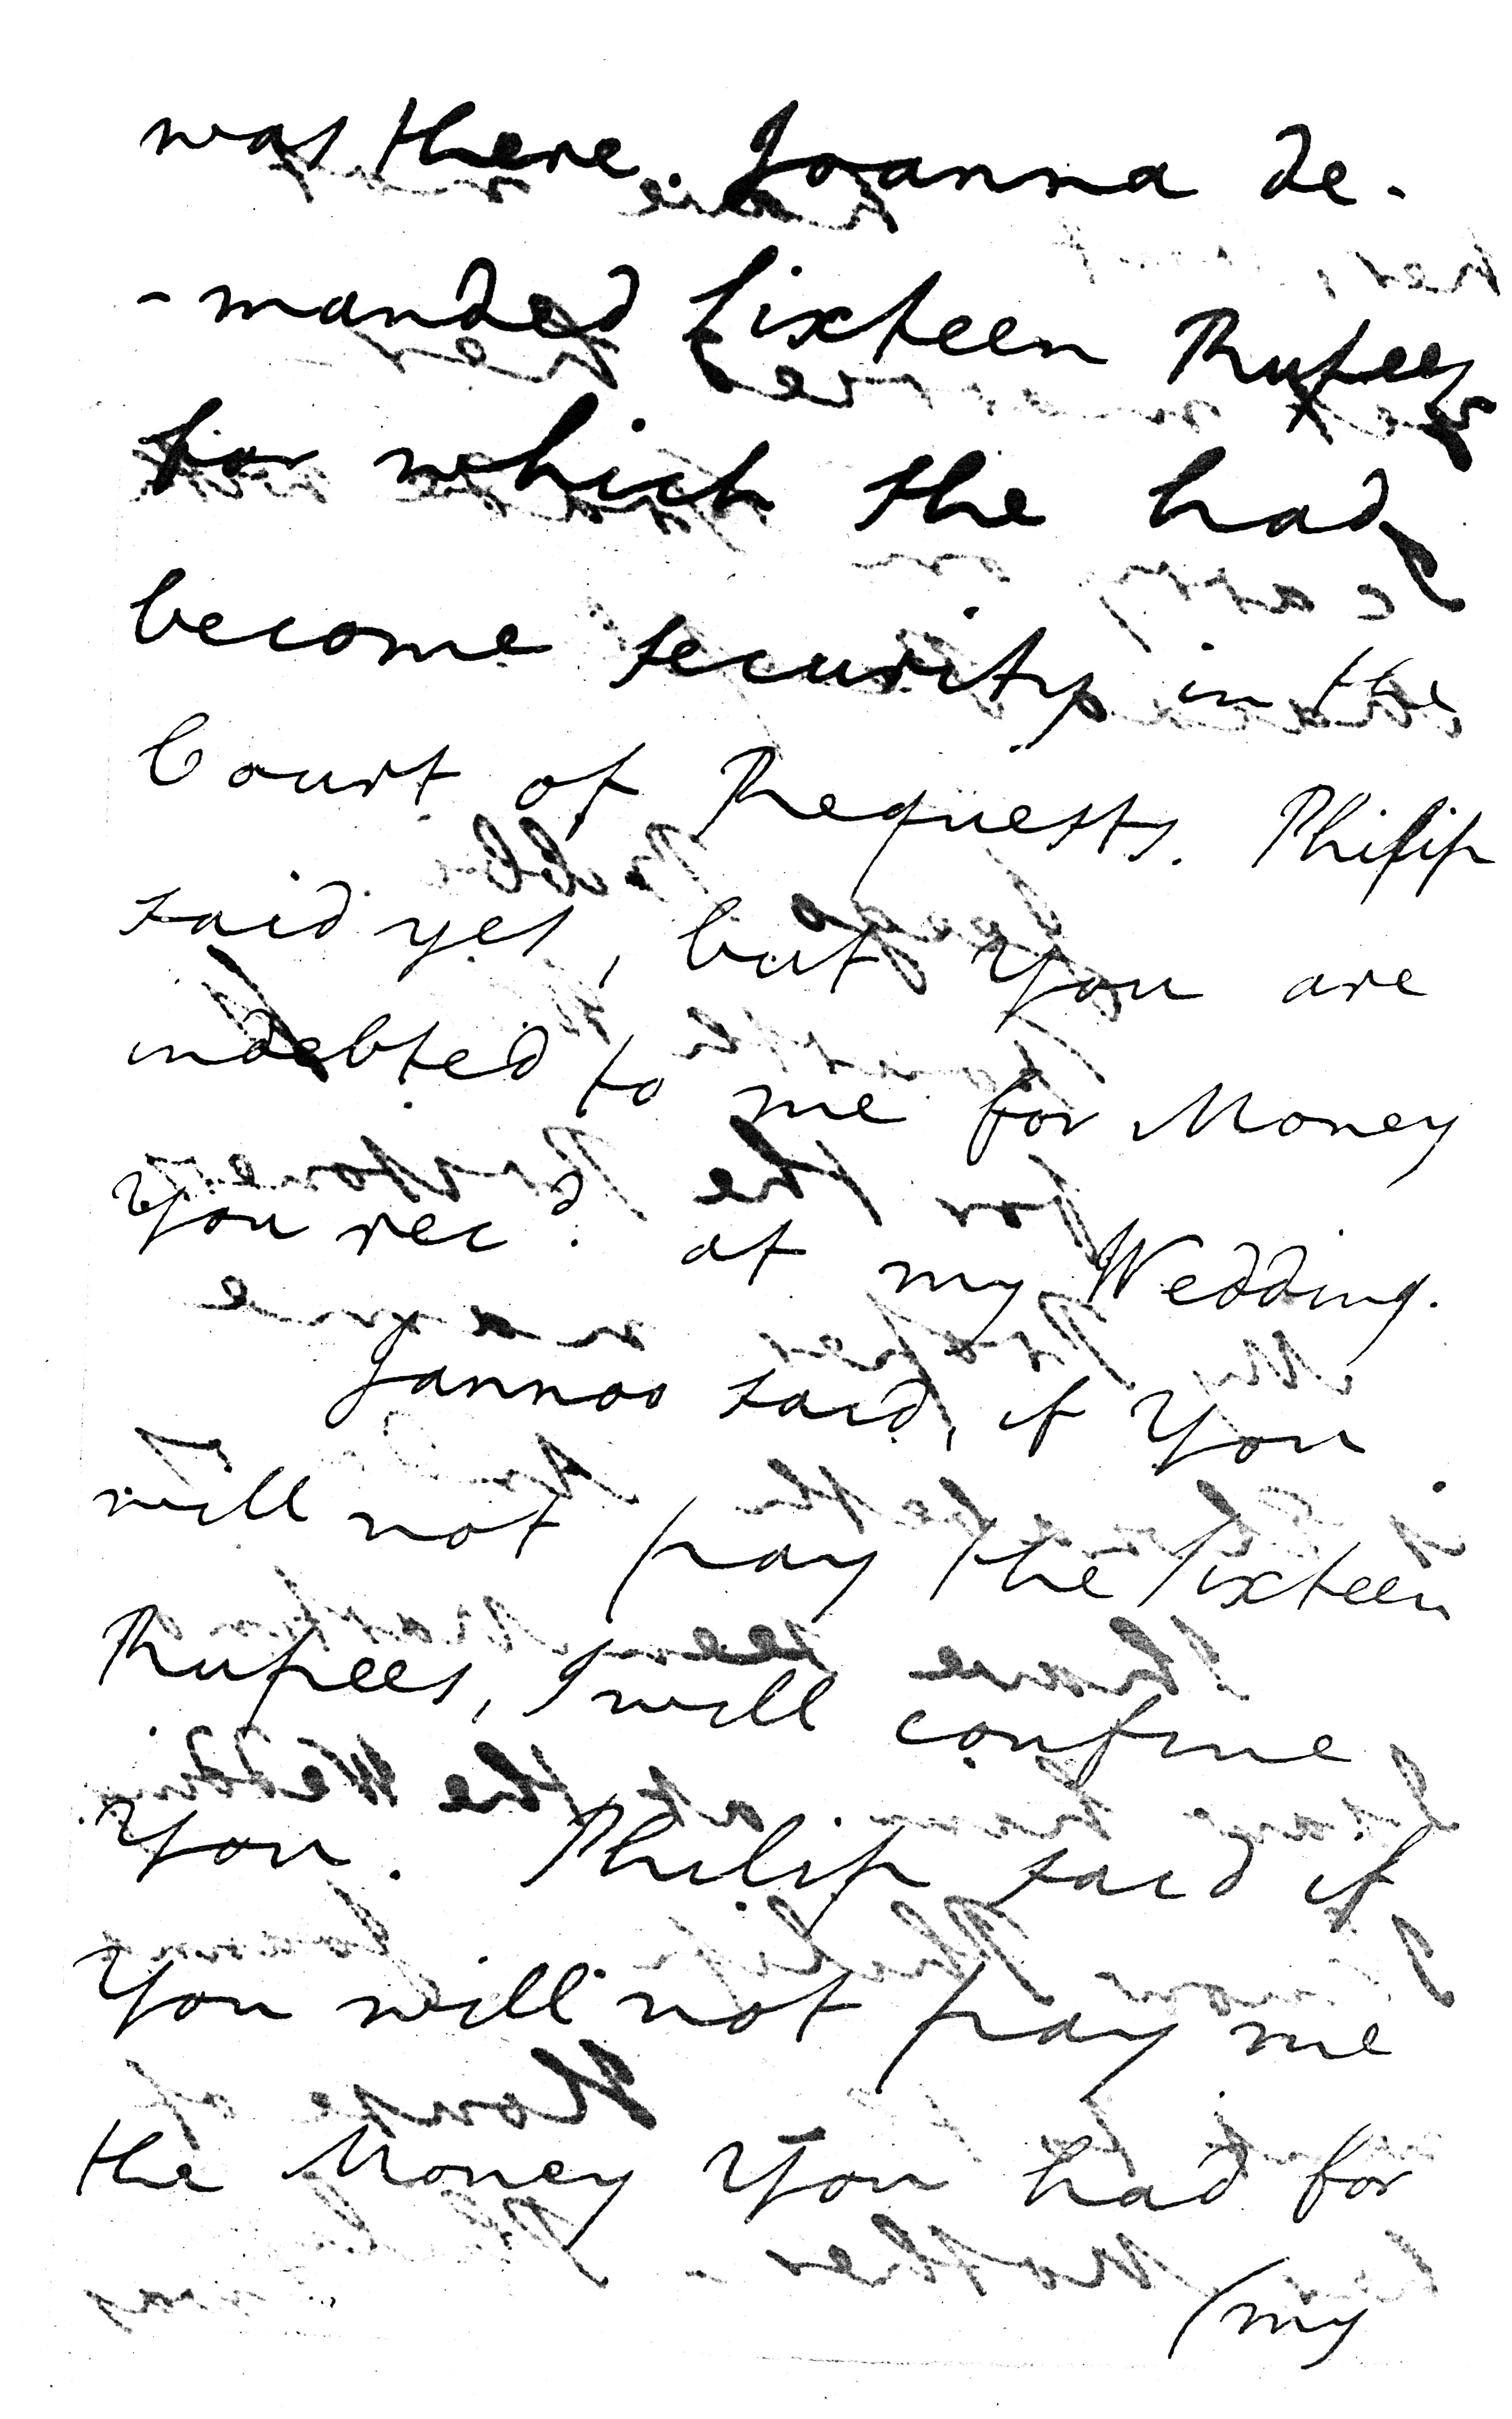 was there. Joanna de-
-manded sixteen Rupees
for which she had
become security in the
Court of Requests. Philip
said yes, but You are
indebted to me for Money
You recd. at my Wedding.
Jannoo said, if You
will not pay the sixteen
Rupees, I will confine
You. Philip said if
You will not pay me
the Money You had for
(my